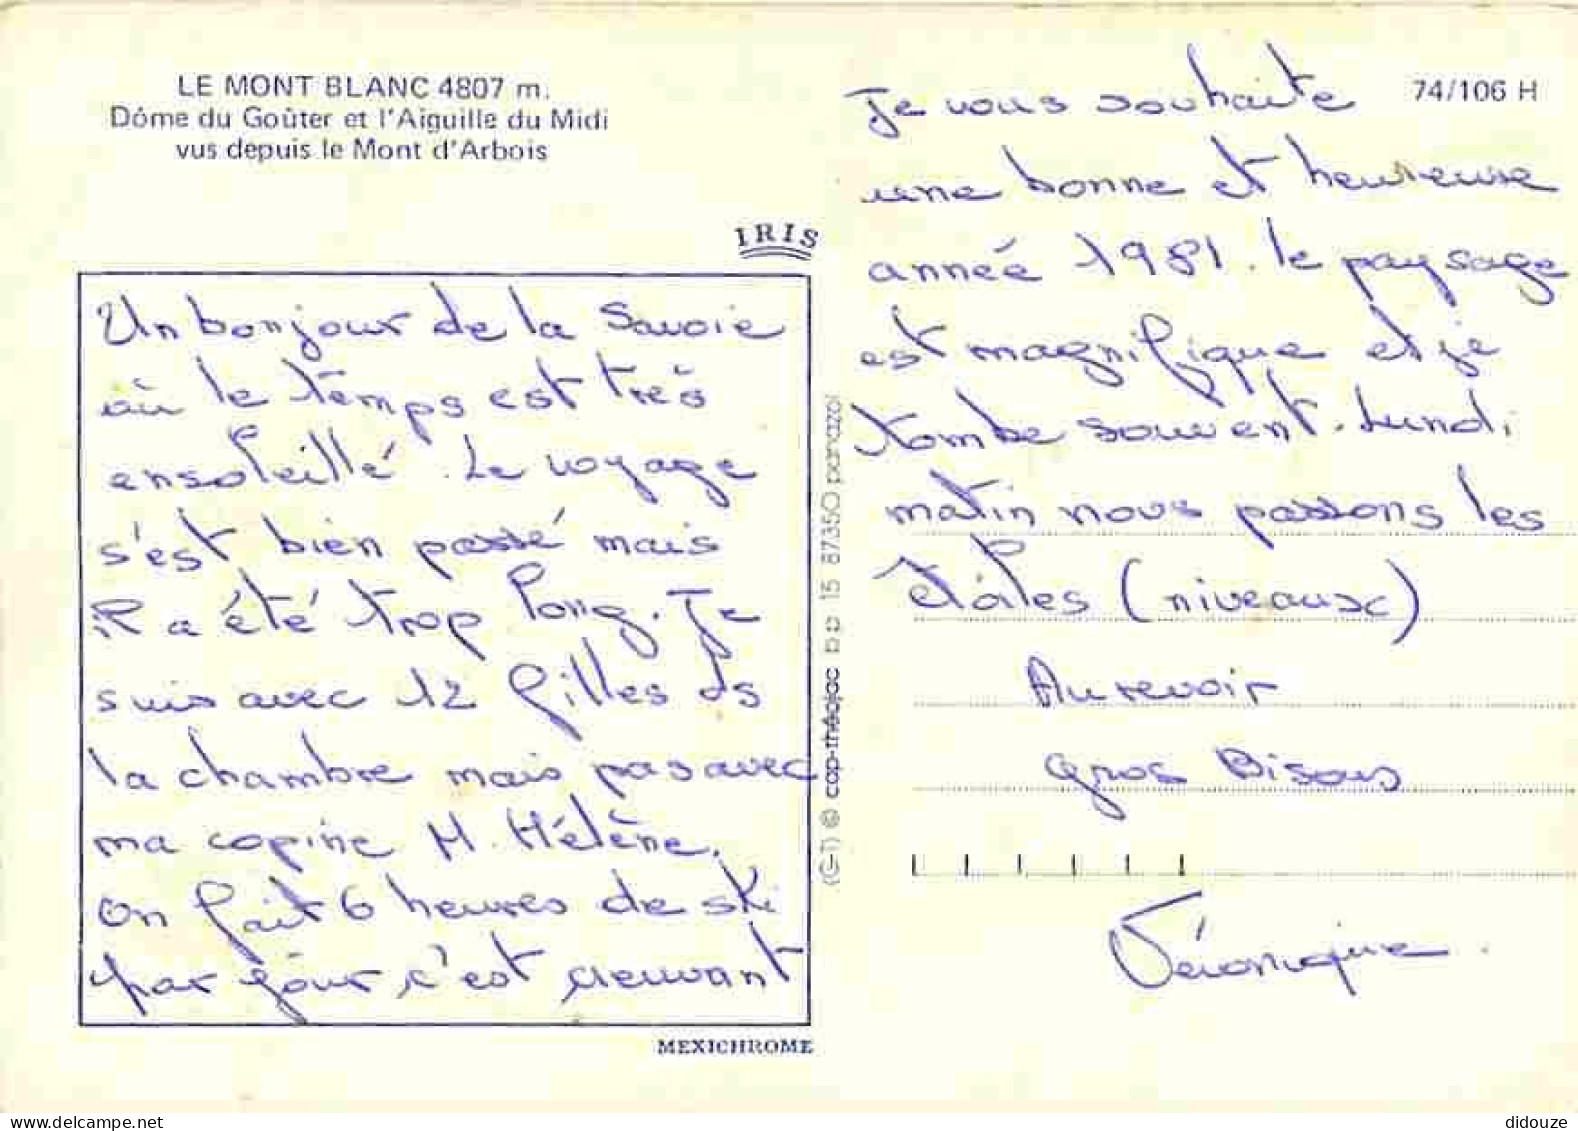 LE MONT BLANC 4807 m.
Dôme du Goûter et l'Aiguille du Midi
vus depuis le Mont d'Arbois
IRIS
Un bonjour de la Savoie
où le temps est très
ensoleillé. Le voyage
s'est bien passé mais
il a été trop long. Je
suis avec 12 filles ds
la chambre mais pas avec
ma copine M. Hélène.
On fait 6 heures de ski
par jour c'est crevant
MEXICHROME
(G-T) © cap-théojac b p 15 87350 panazol
74/106 H
Je vous souhaite
une bonne et heureuse
année 1981. le paysage
est magnifique et je
tombe souvent. Lundi
matin nous passons les
étoiles (niveaux)
Au revoir
Gros Bisous
Véronique.
didouze